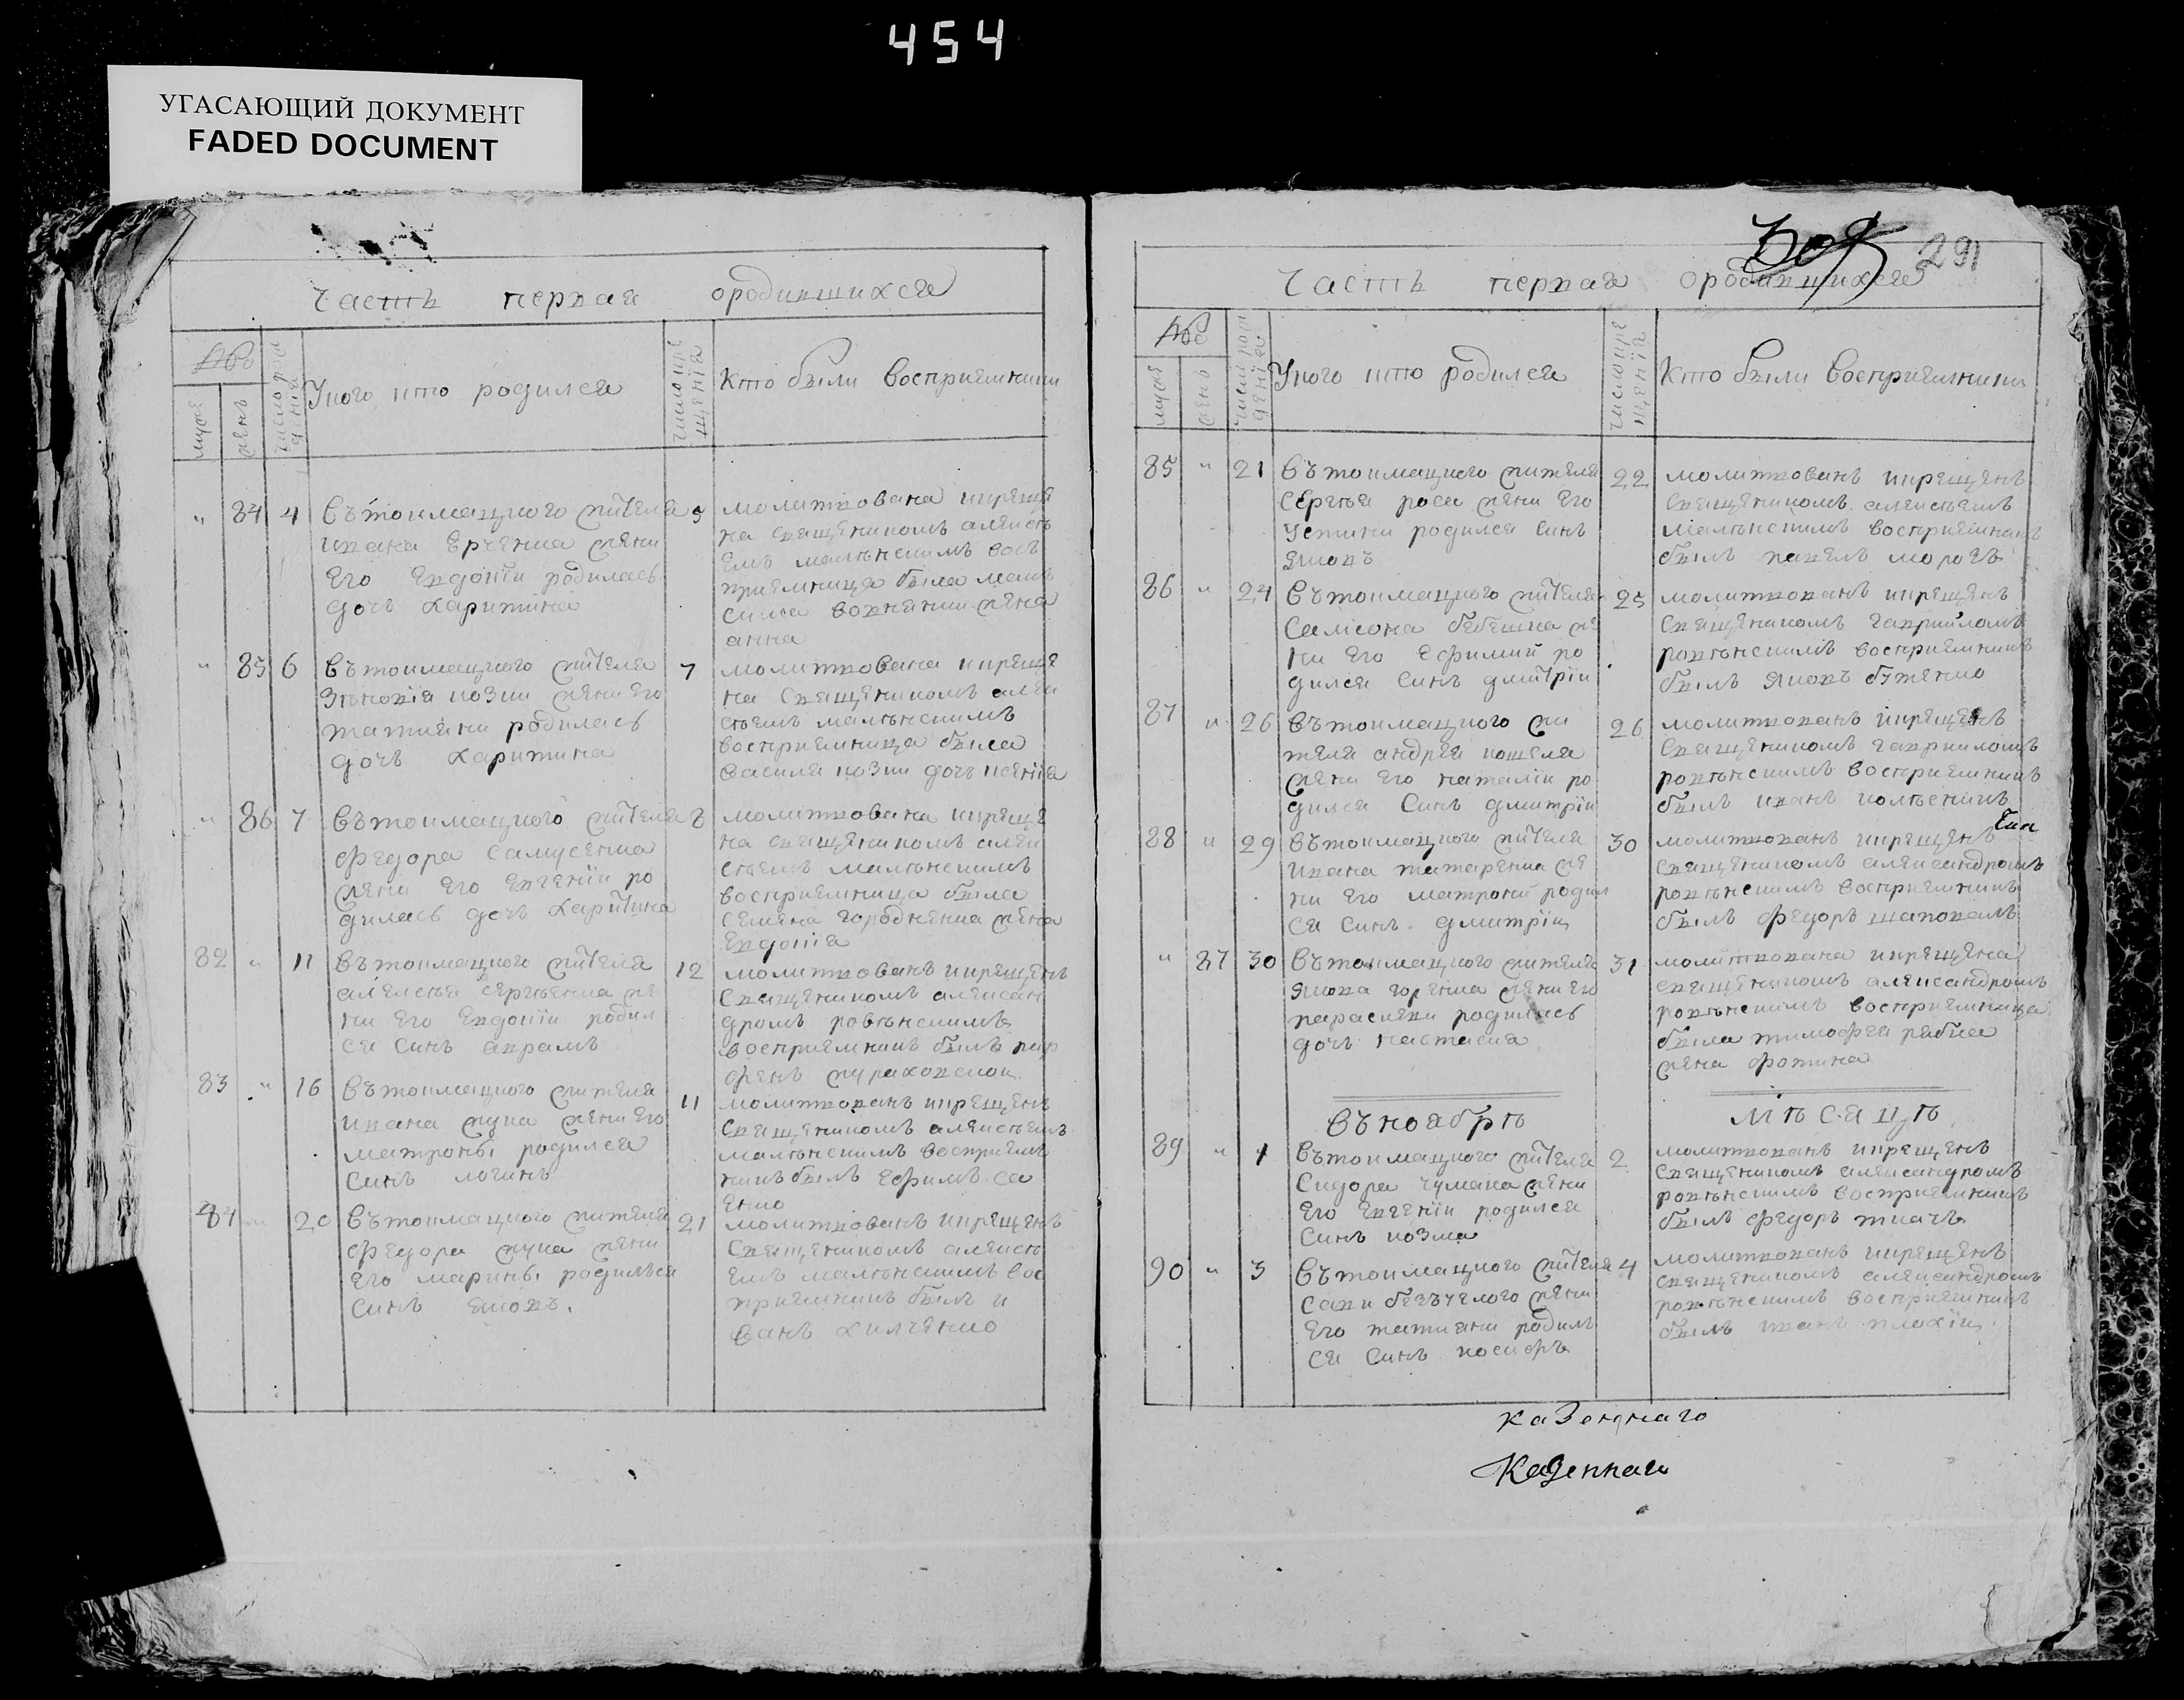 454
УГАСАЮЩИЙ ДОКУМЕНТ
FADED DOCUMENT
Часть первая ородившихся
№
мужс
женъ
число рож
денiя
Укого кто родился
число кре
щенiя
Кто были восприемники
" 84 4 Вътоимацкого жителя 5
ивана Ерченка жени
Его Евдокiи родилась
дочь харитина
молитвована икреще
на священикомъ алексъ
емъ малъженимъ вос
приемница была мак
сима жена
анна
" 85 6 Вътоимацкого жителя 7
зъновiя козки жени Его
татияни родилась
дочь харитина
молитвована икреще
на священикомъ алек
съемъ
восприемница была
василя козки дочь ксенiя
" 86 7 Вътоимацкого жителя 8
федора Самусенка
жени Его Евгенiи ро
дилась дочь харитина
молитвована икреще
на священикомъ алек
съемъ
восприемница была
семена городненка жена
Евдокiя
82 " 11 Вътоимацкого жителя 12
алексъя сергъенка же
ни Его Евдокiи родил
ся синъ аврамъ
молитвованъ икрещенъ
священикомъ алексан
дромъ ровънскимъ
восприемникъ былъ пар
фенъ
83 " 16 Вътоимацкого жителя 11
ивана жука жени Его
матроны родился
синъ логинъ
молитвованъ икрещенъ
священикомъ алексъемъ
восприем
никъ былъ Ефимъ са
енко
84 " 20 Вътоимацкого жителя 21
федора жука жени
Его марины родилъся
синъ яковъ.
молитвованъ икрещенъ
священикомъ алексъ
емъ вос
приемникъ былъ и
ванъ хилченко
291
Часть первая ородившихся
№
мужс
женъ
число рож
денiя
Укого кто родился
число кре
щенiя
Кто были восприемники
85 " 21 Вътоимацкого жителя 22
Сергъя роса жени Его
Устини родился синъ
яковъ
молитвованъ икрещенъ
священикомъ алексъемъ
восприемникъ
былъ павелъ морозъ
86 " 24 Вътоимацкого жителя 25
Самсона бебешка же
ни Его Ефимий ро
дился синъ дмитрiи
молитвованъ икрещенъ
священикомъ гавриломъ
ровънскимъ восприемникъ
былъ яковъ
87 " 26 Вътоимацкого жи 26
теля андрея кошеля
жени Его наталiи ро
дился синъ дмитрiи
молитвованъ икрещенъ
священикомъ гавриломъ
ровънскимъ восприемникъ
былъ иванъ колъсникъ
88 " 29 Вътоимацкого жителя 30
ивана татаренка же
ни Его матроний родил
ся синъ дмитрiи
молитвованъ икрещенъ
священикомъ александромъ
ровънскимъ восприемникъ
былъ федоръ шаповалъ
" 87 30 Вътоимацкого жителя 31
якова горенка жени Его
параскеви родилась
дочь настасия
молитвована икрещена
священикомъ александромъ
ровънскимъ восприемница
была тимофея рябка
жена фотина
Въноябръ мъсяцъ
89 " 1 Вътоимацкого жителя 2
Сидора чумака жени
Его Евгенiи родился
синъ козма
молитвованъ икрещенъ
священикомъ александромъ
ровънскимъ восприемникъ
былъ федоръ ткачъ
90 " 3 Вътоимацкого жителя 4
Сави безъуглого жени
Его татияни родилъ
ся синъ иосифъ
молитвованъ икрещенъ
священикомъ александромъ
ровънскимъ восприемникъ
былъ иванъ плохiи
казеннаго
Казеннаго